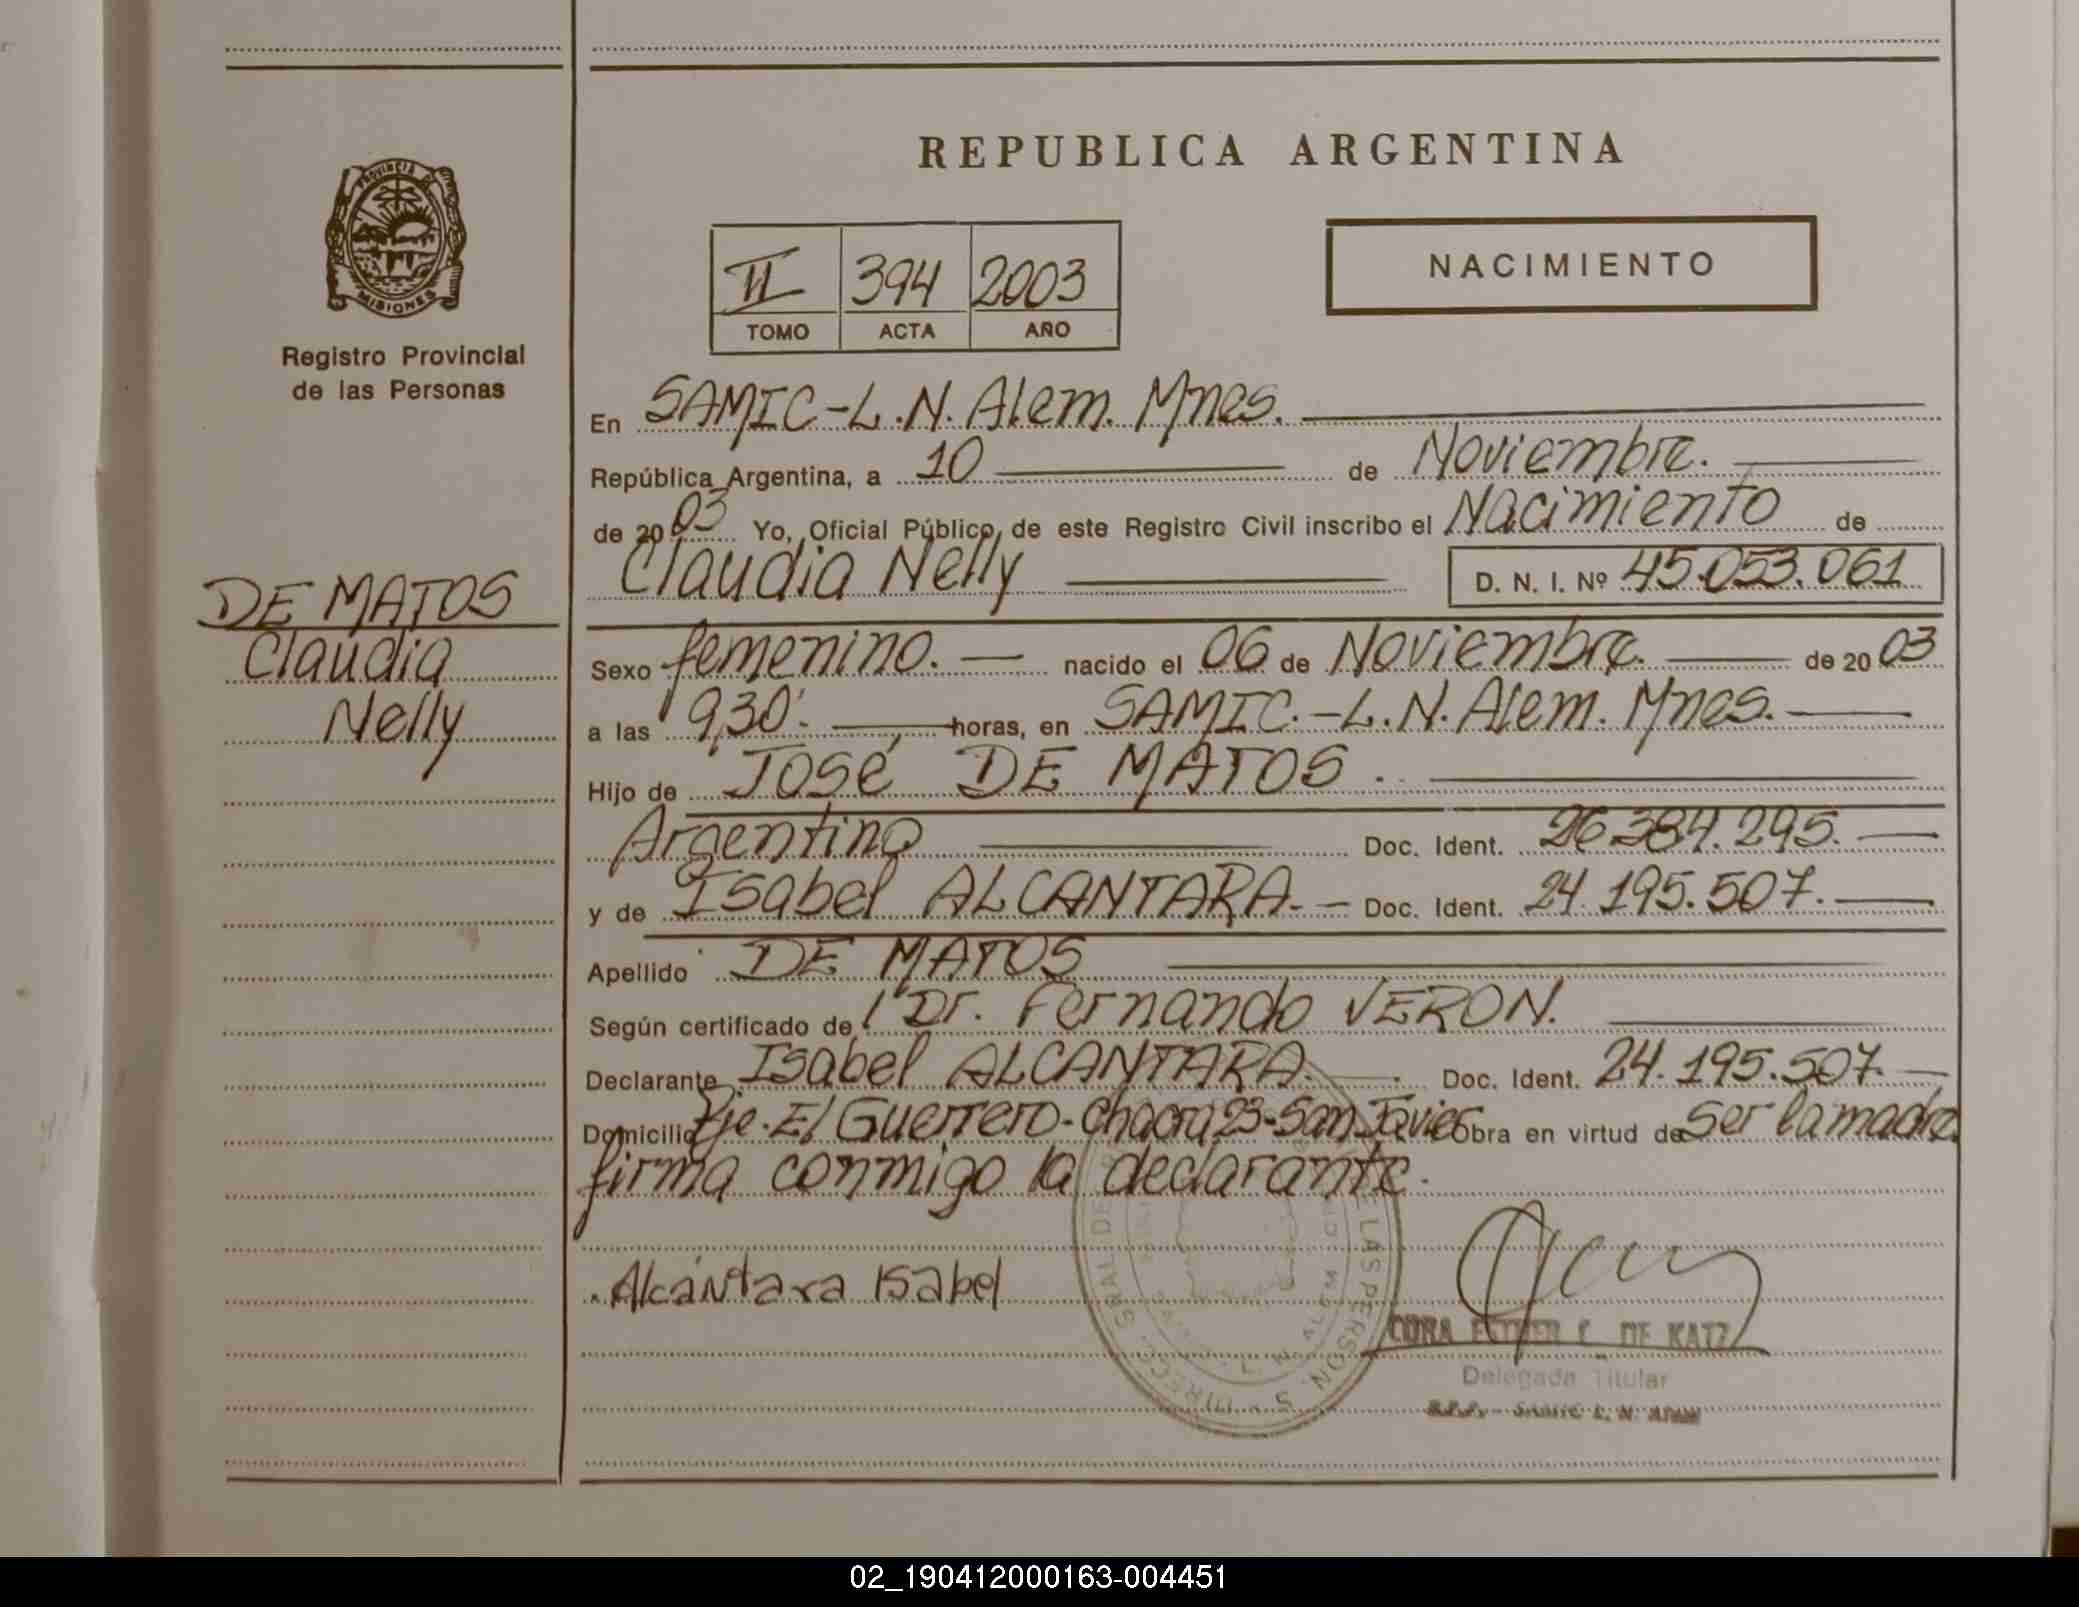 REPUBLICA ARGENTINA
PROVINCIA DE
MISIONES
Registro Provincial
de las Personas
NACIMIENTO
II 394 2003
TOMO ACTA AÑO
En SAMIC-L.N. Alem. Mnes.
República Argentina, a 10 de Noviembre.
de 2003 Yo, Oficial Público, de este Registro Civil inscribo el Nacimiento de
Claudia Nelly D. N. I. Nº 45.053.061
DE MATOS
Claudia
Nelly
Sexo femenino. nacido el 06 de Noviembre. de 20 03
a las 9,30'. horas, en SAMIC.-L.N. Alem. Mnes.
Hijo de José DE MATOS.
Argentino Doc. Ident. 26.384.295.
y de Isabel ALCANTARA. Doc. Ident. 24.195.507.
Apellido DE MATOS
Según certificado de Dr. Fernando VERON.
Declarante Isabel ALCANTARA. Doc. Ident. 24.195.507.
Domicilio Pje. El Guerrero-Chacra 23-San Javier Obra en virtud de Ser la madre.
firma conmigo la declarante.
Alcántara Isabel
ESTHER C. DE KATZ
Delegada Titular
SAMIC L. N. ALEM
02_190412000163-004451